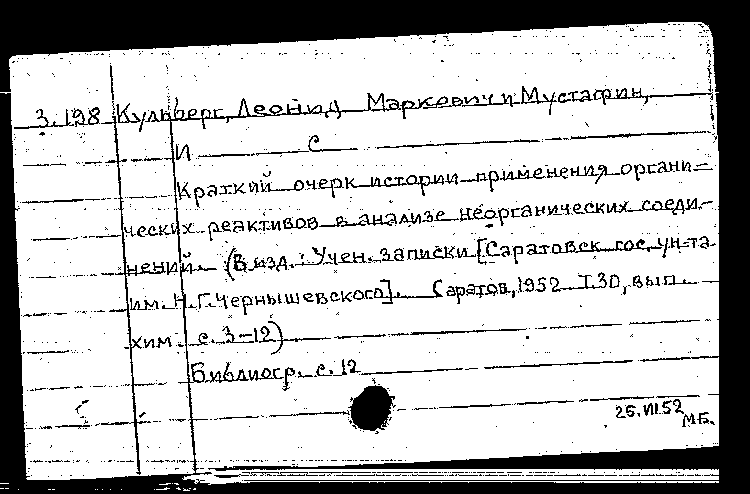 3.198 Кульберг, Леонид Маркович и Мустафин,
И С
Краткий очерк истории применения органи-
ческих реактивов в анализе неорганических соеди-
нений. (В изд.: Учен. записки [Саратовск. гос. ун-та
им. Н.Г.Чернышевского]. Саратов, 1952 Т.30, вып.
хим. с. 3-12)
Библиогр. с. 12
25.VII.52
М.Б.